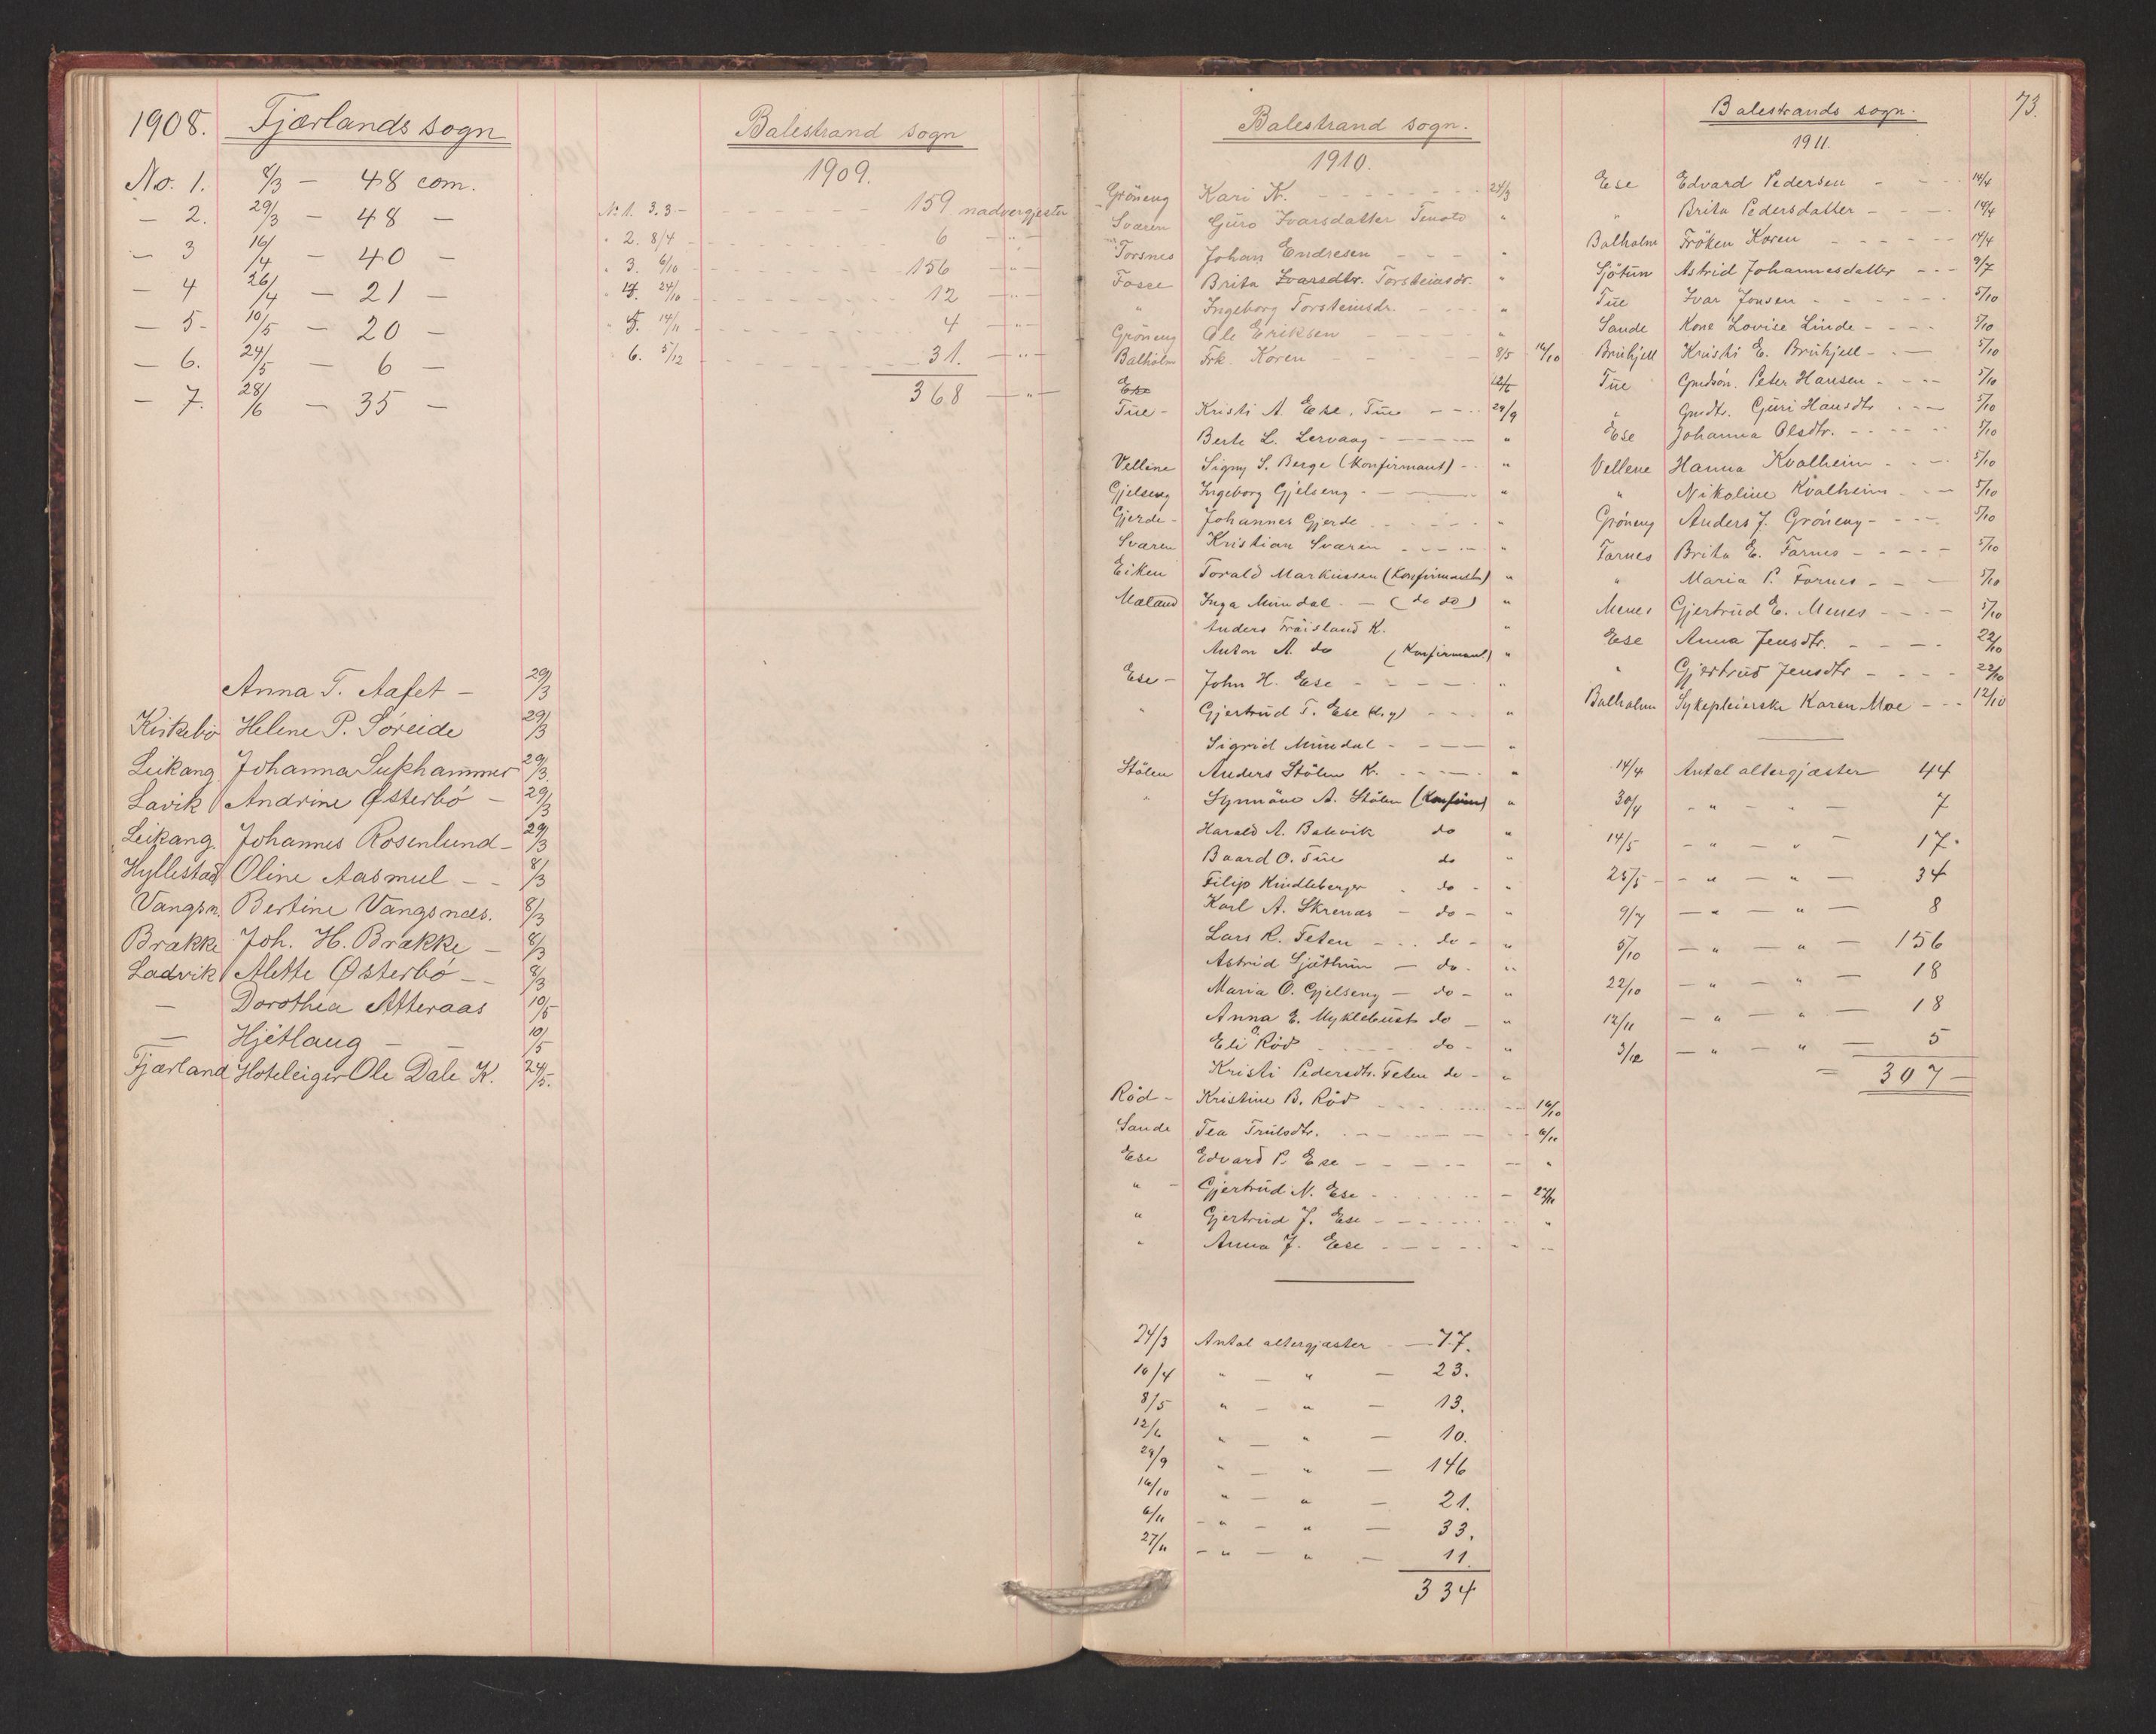 1908. Fjærlands sogn
No. 1. 8/3 — 48 com.
— 2. 29/3 — 48 —
— 3 16/4 — 40 —
— 4 26/4 — 21 —
— 5. 10/5 — 20 —
— 6. 24/5 — 6 —
— 7. 28/6 — 35 —
Anna T. Aafet — 29/3
Kirkebö Helene P. Söreide 29/3
Leikang Johanna Suphammer 29/3.
Lavik Andrine Østerbö — 29/3
Leikang. Johannes Rosenlund — 29/3
Hyllestad Oline Aasmul — - 8/3
Vangsn. Bertine Vangsnæs. 8/3
Brække Joh. H. Brække — 8/3
Ladvik Alette Østerbö — - 8/3
— Dorothea Atteraas 10/5
— Hjetlaug — — 10/5
Fjærland Hoteleiger Ole Dale K. 24/5.
Balestrand sogn
1909.
No 1. 3.3 — 159 nadvergjester
" 2. 8/4 — 6 — " —
" 3. 6/10 — 156 — " —
" 4. 24/10 — 12 — " —
" 5. 14/11 — 4 — " —
6. 5/12 — 31. — " —
368 — " —
Balestrand sogn.
1910.
Gröneng Kari K. - - - 24/3
Sværen Guro Ivarsdatter "
Torsnes Johan Endresen - - - "
Fosse Brita Ivarsdtr. Torsteinsdr. "
" Ingeborg Torsteinsdr. - - - "
Gröneng Ole Eriksen - - - "
Balholm Frk. Koren - - - 8/5 16/10
Ese 12/6
Tue - Kristi A. Ese, Tue - - - 29/9
Berte L. Lervaag - - - "
Velline Signy S. Berge (Konfirmant) - "
Gjelseng Ingeborg Gjelseng - - "
Gjerde - Johannes Gjerde - - - "
Sværen Kristian Sværen - - - "
Eiken Torald Markussen (Konfirmant) "
Mæland Inga Mundal - — (do do) "
Anders Fröisland K. "
Anton A. do (Konfirmant) "
Ese - John H. Ese - - - "
" Gjertrud T. Ese - - - "
Sigrid Mundal - - - "
Stölen Anders Stölen K. - - - "
" Synnöve A. Stölen (Konfirm) "
Harald A. Balevik do "
Baard O. Tue do "
Filip Kindleberger - do - "
Karl A. Skrenæs — do — "
Lars R. Feten - - do - "
Astrid Sjøthun — do - "
Maria O. Gjelseng — do — "
Anna E. Myklebust do — "
Eli Röd - - - do - "
Kristi Pedersdtr. Feten do - "
Röd - Kristine B. Röd - - - 16/10
Sande Tea Trulsdtr. - - - 6/11
Ese Edvard P. Ese - - - "
" - Gjertrud N. Ese - - - 27/11
" Gjertrud J. Ese - - - "
" Anna J. Ese - - - "
24/3 Antal altergjæster — 77.
10/4 " — " — 23.
8/5 " — " — 13.
12/6 " — " — 10.
29/9 " — " — 146
16/10 " — " — 21.
6/11 - " — " — 33.
27/11 - " — " — 11.
334
73.
Balestrands sogn.
1911.
Ese Edvard Pedersen - - - 14/4
" Brita Pedersdatter - - - 14/4
Balholm Fröken Koren - - - 14/4
Sjötun Astrid Johannesdatter - - - 9/7
Tue Ivar Jonsen - - - 5/10
Sande Kone Lovise Linde - - - 5/10
Brühjell Kristi E. Brühjell - - — 5/10
Tue Gmdsön. Peter Hansen - - - 5/10
" Gmdtr. Guri Hansdtr - - - 5/10
Ese Johanna Olsdtr. - - - 5/10
Vellene Hanna Kvalheim - - — 5/10
" Nikoline Kvalheim - - — 5/10
Gröneng Anders J. Gröneng - - - 5/10
Farnes Brita E. Farnes - - - 5/10
" Maria P. Farnes - - - 5/10
Menes Gjertrud E. Menes - - - 5/10
Ese Anna Jensdtr. - - - 22/10
" Gjertrud Jensdtr - - - 22/10
Balholm Sykepleierske Karen Moe - - - 12/10
14/4 Antal altergjæster 44
30/4 - " - " — 7
14/5 - " — " — 17.
25/5 - - " — " — 34
9/7 — " — " — 8
5/10 — " — " — 156
22/10 — " — " — 18
12/11 — " — " — 18
3/12 — " — " — 5
= 307 —